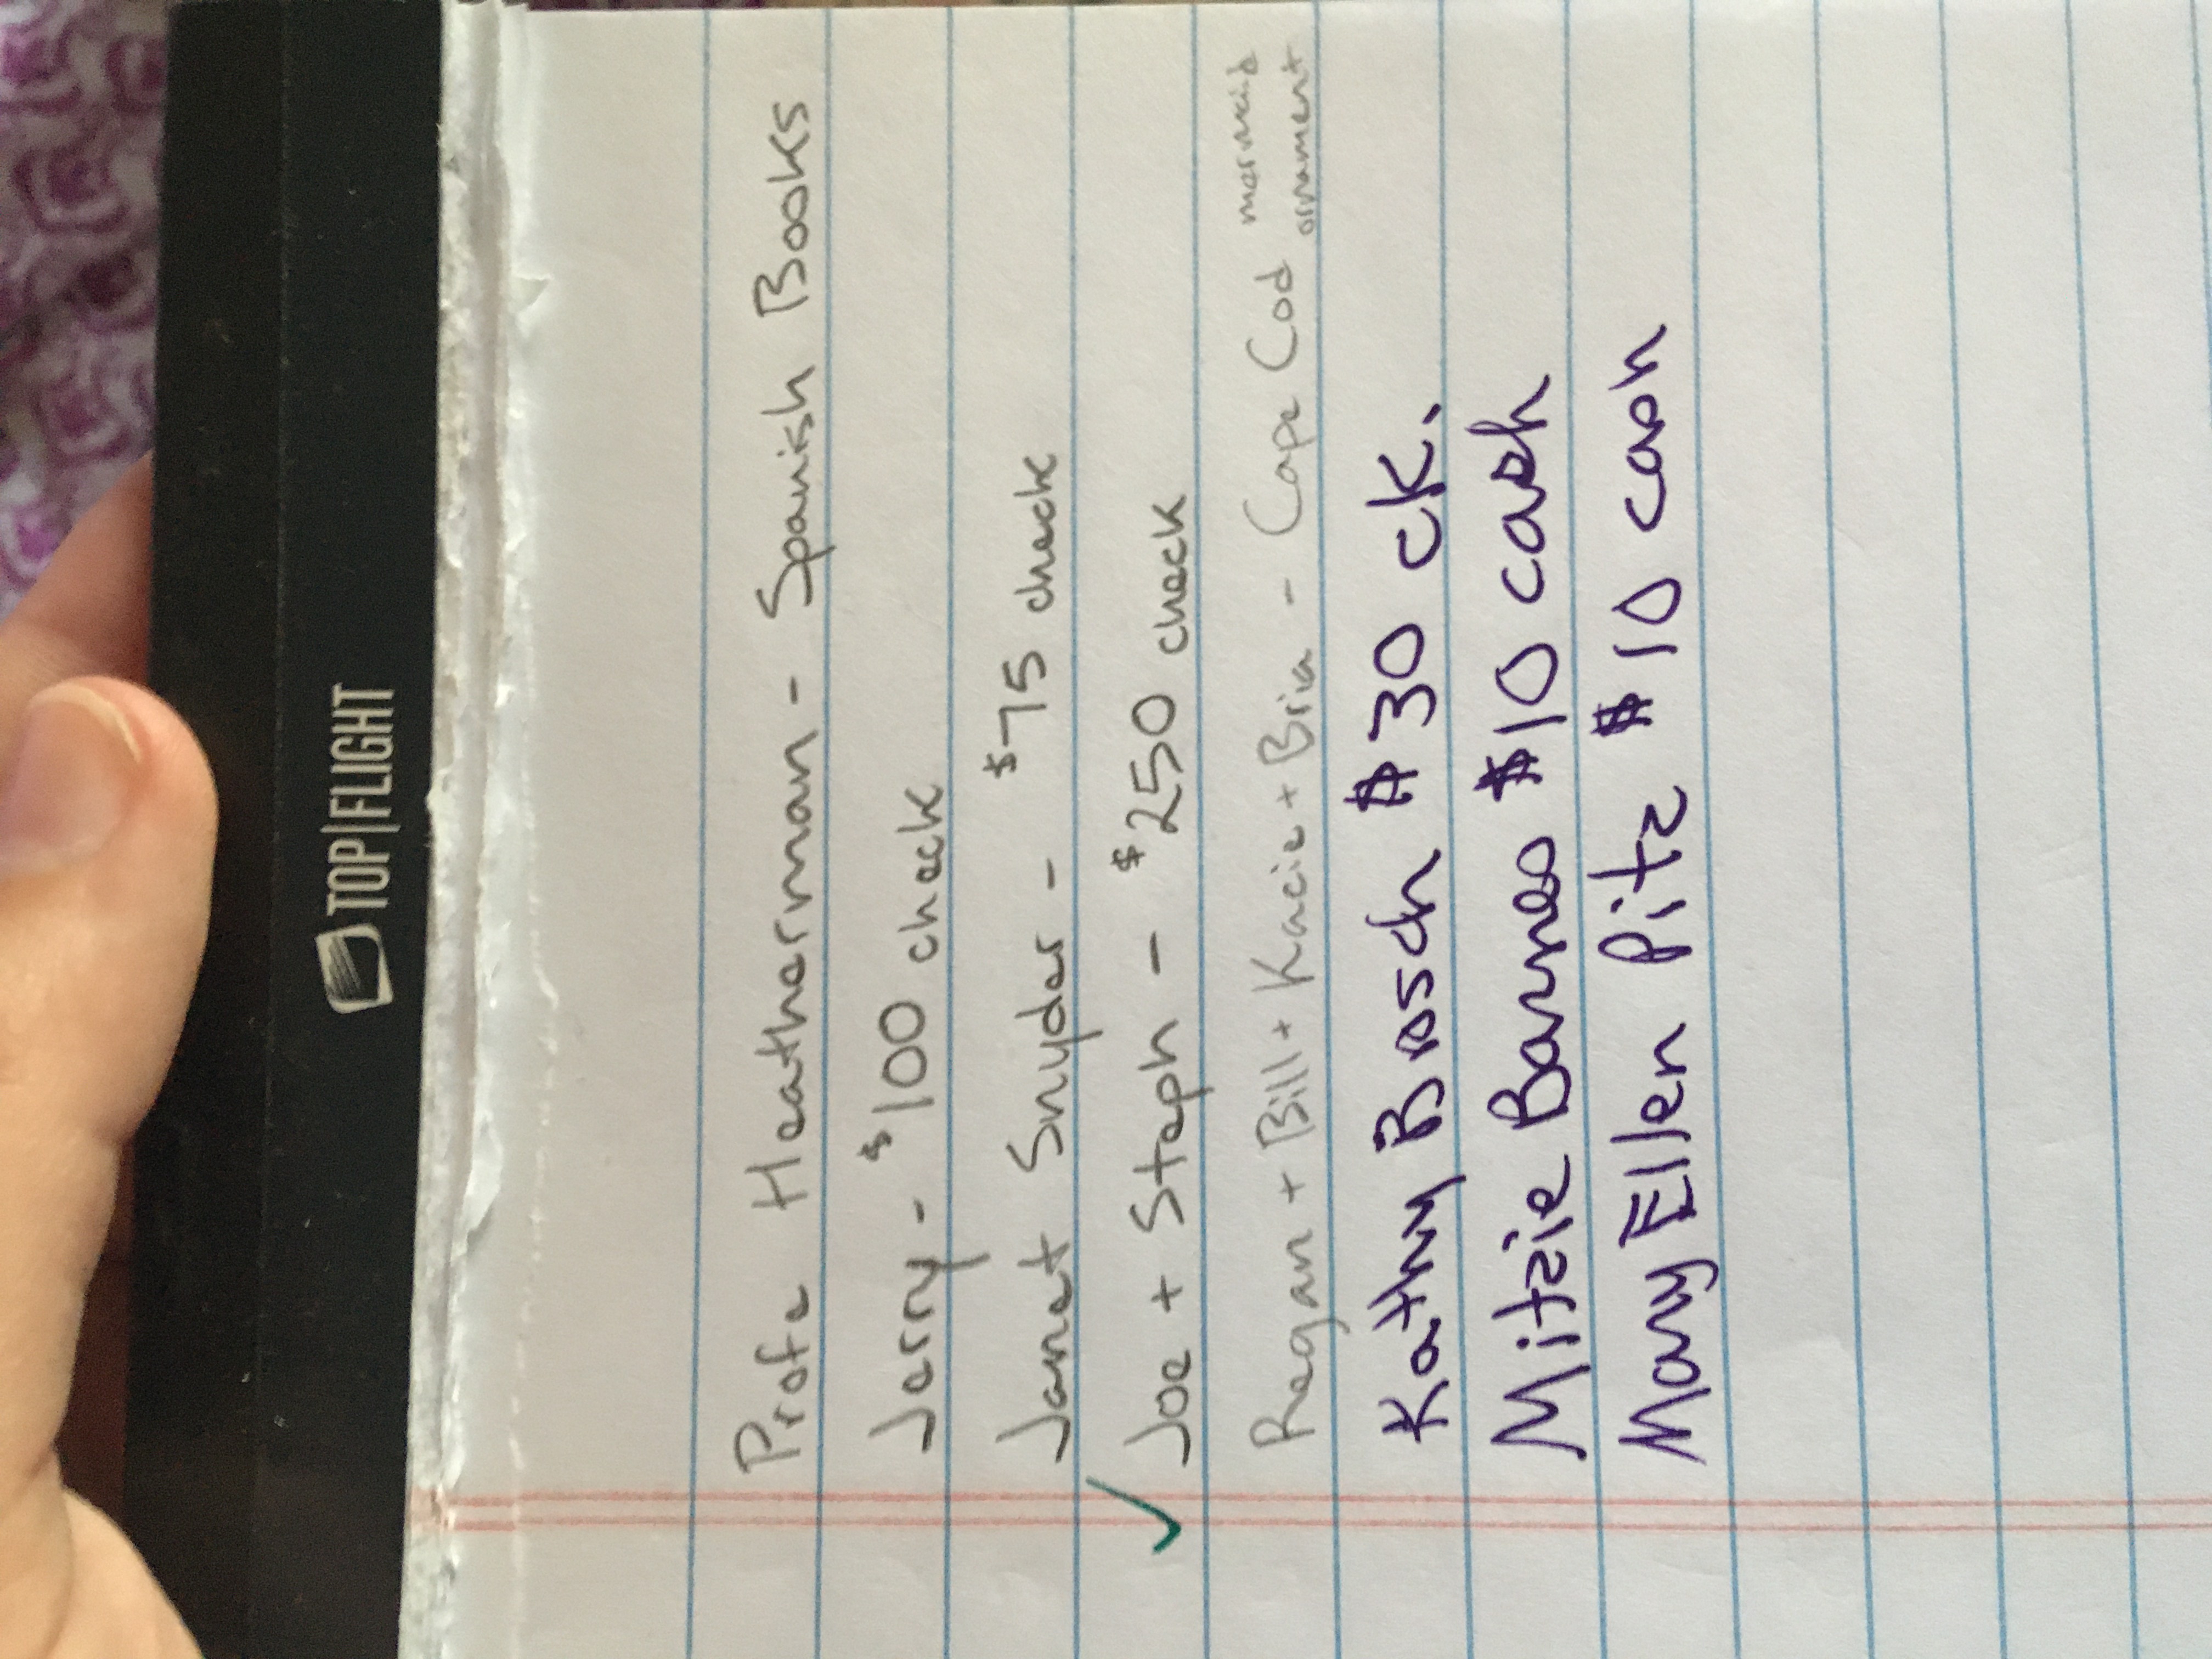 TOP|FLIGHT
Profe Heatherman - Spanish Books
Jerry - $100 check
Janet Snyder - $75 check
✓ Joe + Steph - $250 check
Regan + Bill + Kacie + Bria - Cape Cod mermaid ornament
Kathy Bosch $30 ck.
Mitzie Barnes $10 cash
Mary Ellen Pitz $10 cash